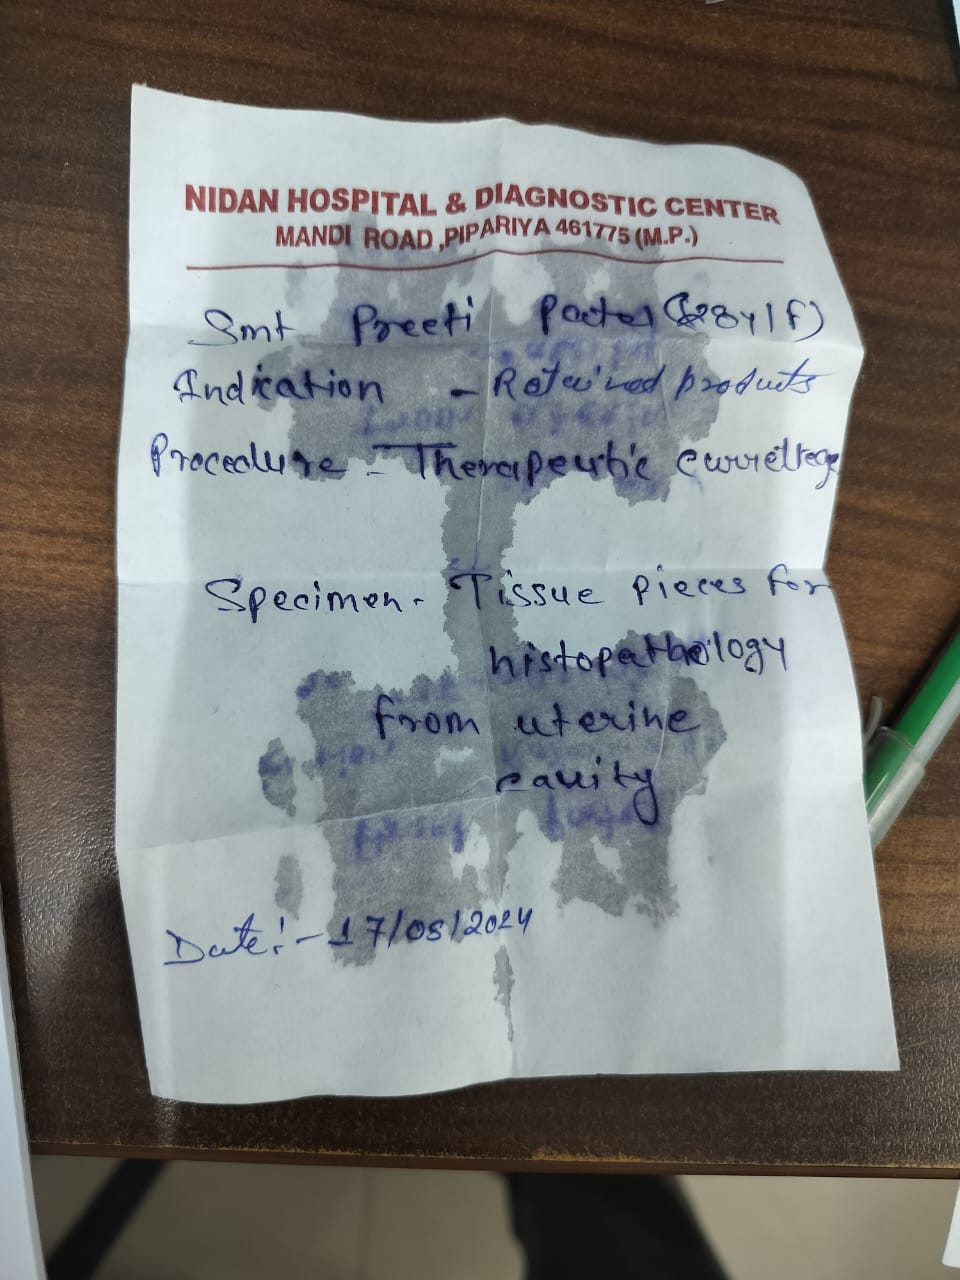 NIDAN HOSPITAL & DIAGNOSTIC CENTER
MANDI ROAD ,PIPARIYA 461775 (M.P.)
Smt Preeti Patel (28y/F)
Indication - Retained products
Procedure - Therapeutic currettege
Specimen - Tissue pieces for
histopathology
from uterine
cavity
Date:- 17/05/2024